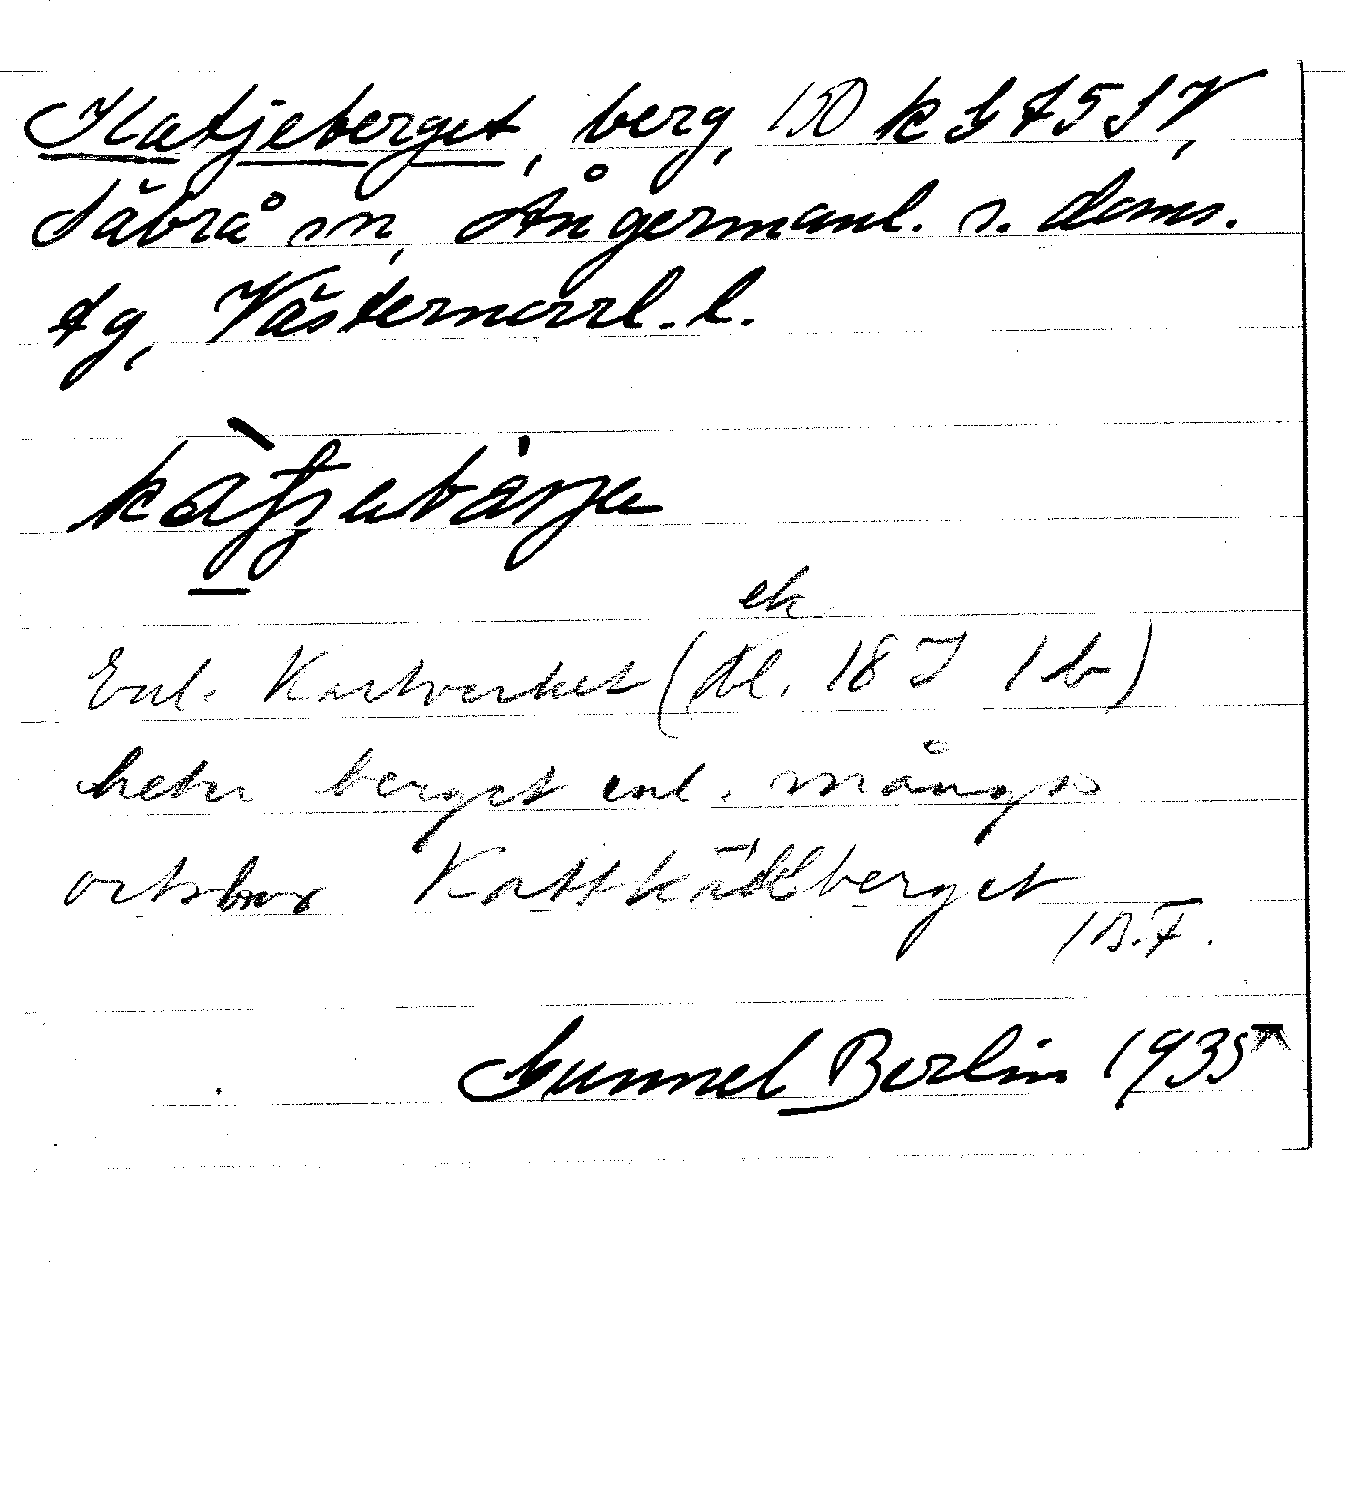 Katjeberget, berg, 150 k G A 5 S V,
Säbrå sn, Ångermanl. s. doms.
tg, Västernorrl. l.
ek
Enl. Kartverket (bl. 18 I 1 b)
heter berget enl. många
ortsbor Kattkällberget
/B.F.
Gunnel Berlin 1935